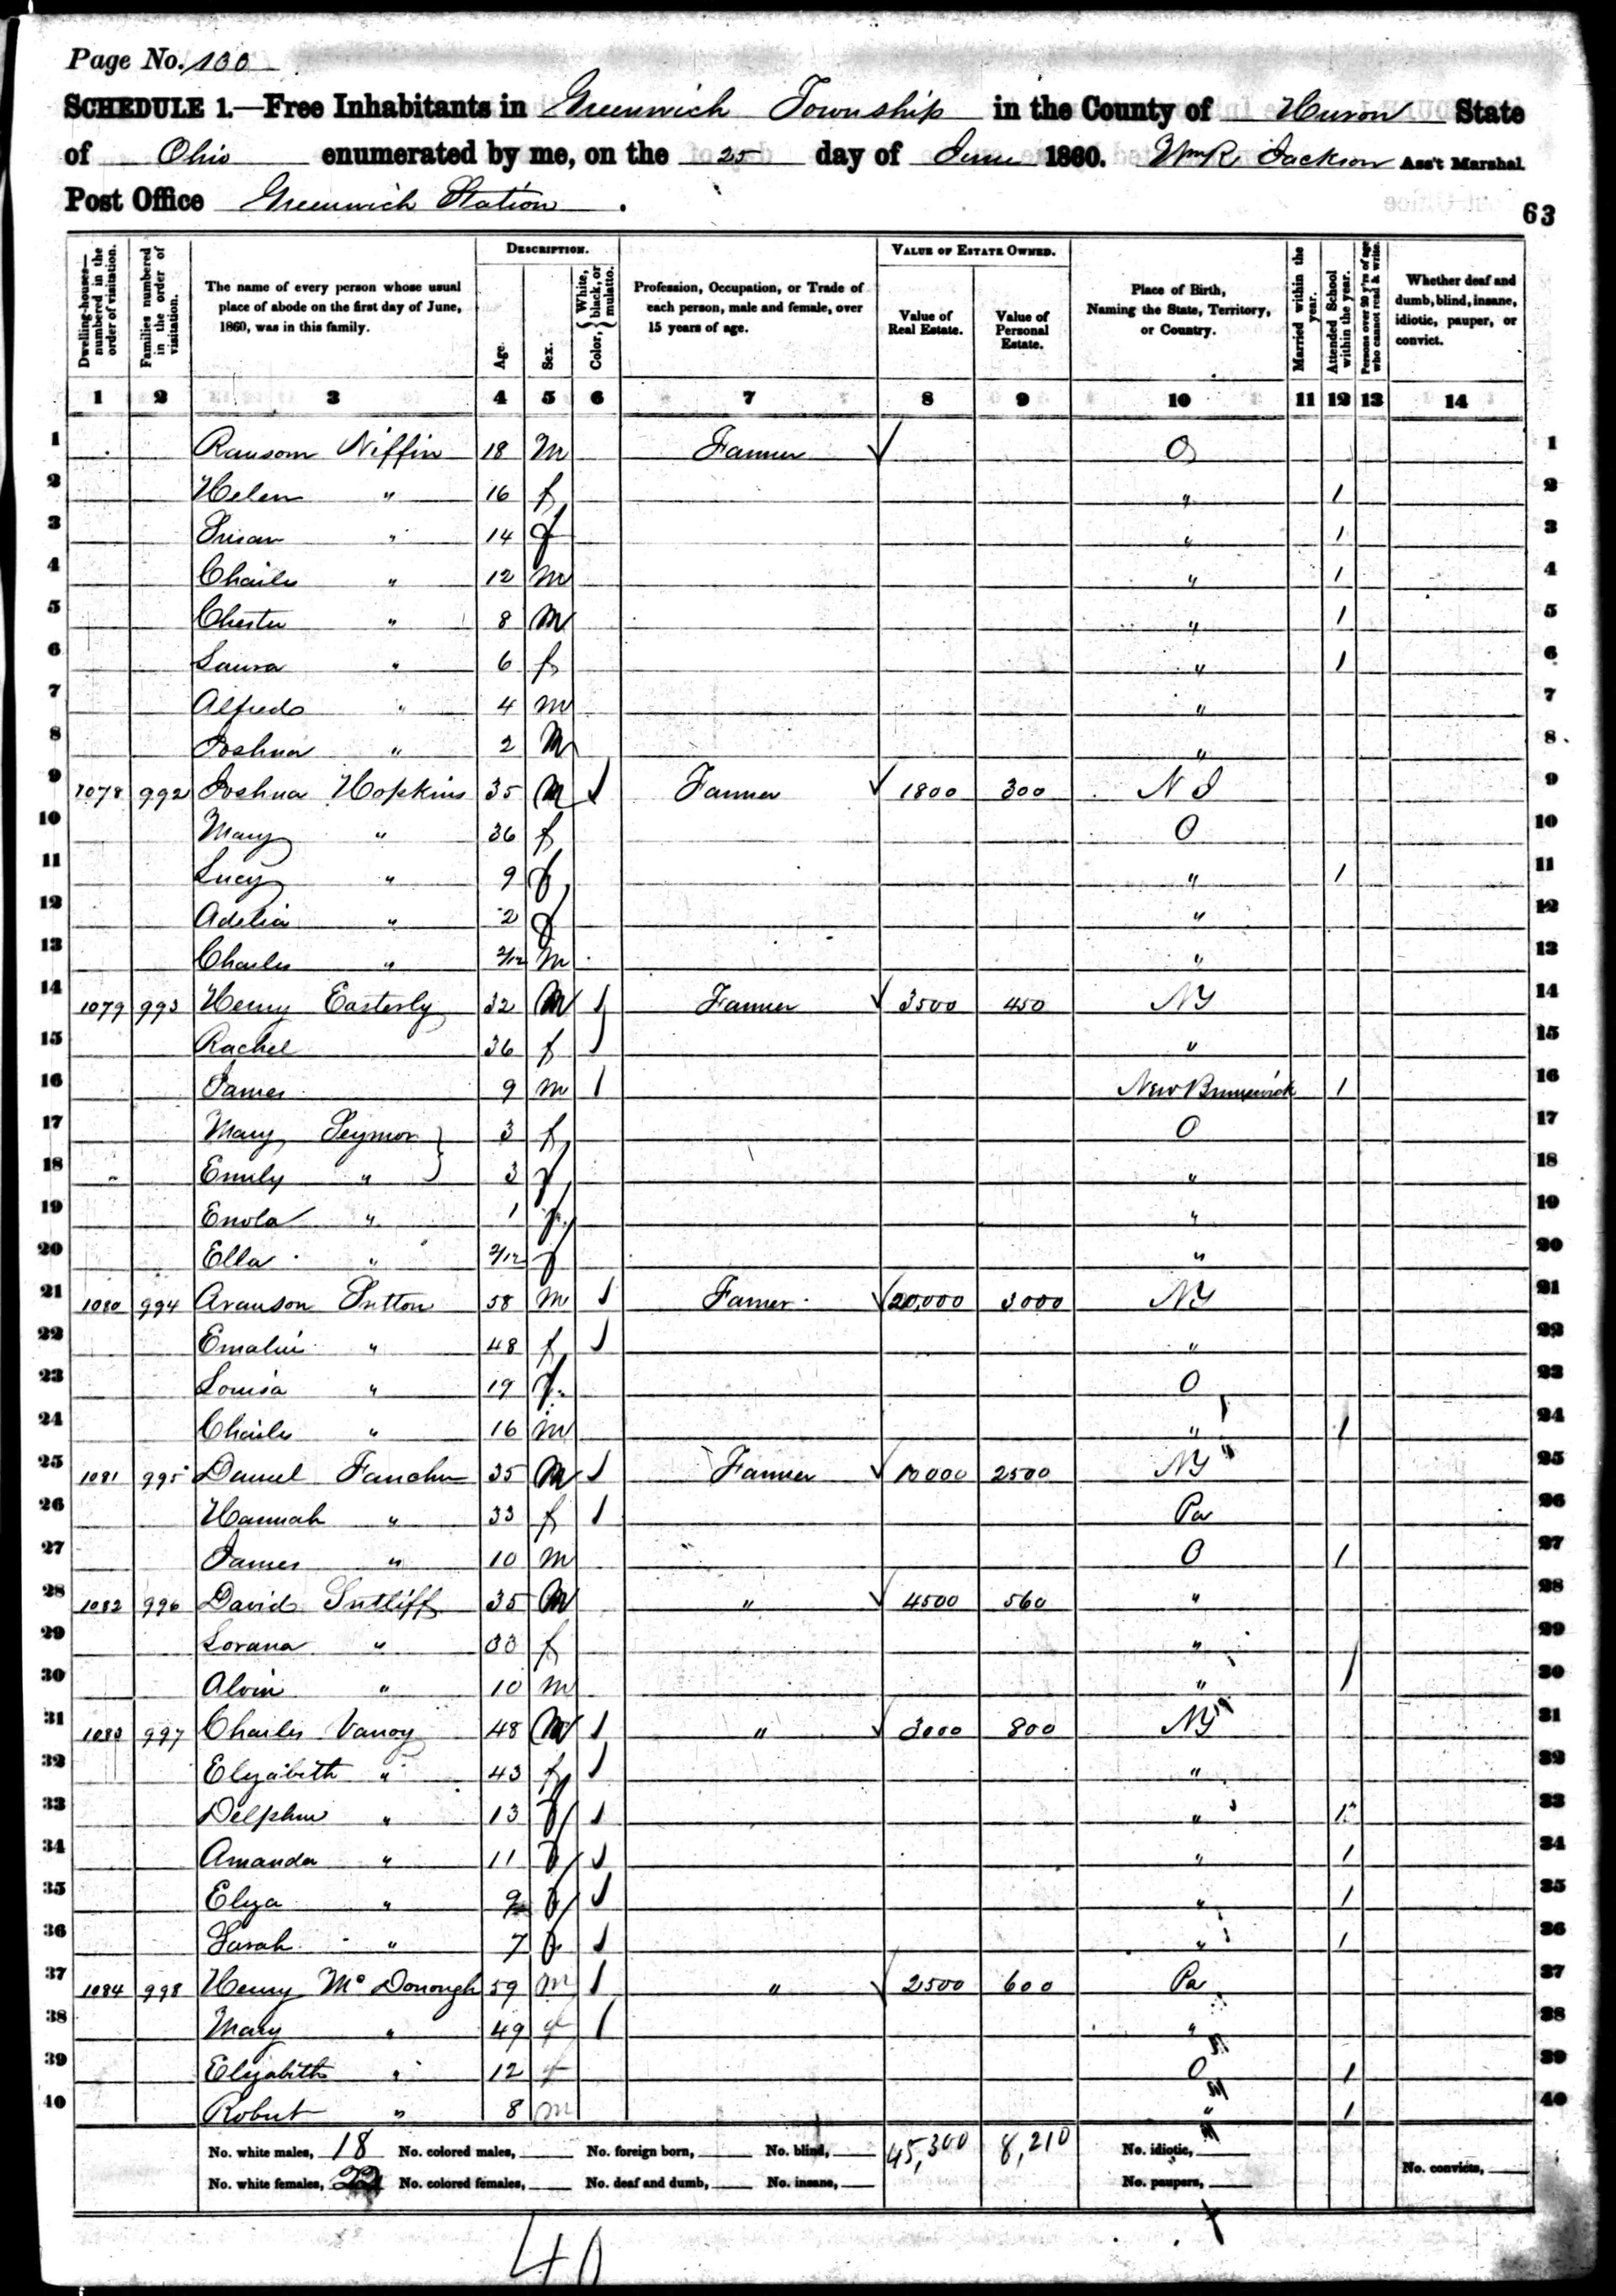 Page No. 100
SCHEDULE 1.—Free Inhabitants in Greenwich Township in the County of Huron State
of Ohio enumerated by me, on the 25 day of June 1860. Wm R. Jackson Ass't Marshal
Post Office Greenwich Station.
63
Dwelling-houses—numbered in the order of visitation. Families numbered in the order of visitation. The name of every person whose usual place of abode on the first day of June, 1860, was in this family. DESCRIPTION. Age. Sex. Color, {White, black, or mulatto. Profession, Occupation, or Trade of each person, male and female, over 15 years of age. VALUE OF ESTATE OWNED. Value of Real Estate. Value of Personal Estate. Place of Birth, Naming the State, Territory, or Country. Married within the year. Attended School within the year. Persons over 20 y'rs of age who cannot read & write. Whether deaf and dumb, blind, insane, idiotic, pauper, or convict.
1 2 3 4 5 6 7 8 9 10 11 12 13 14
1 Ransom Niffin 18 M Farmer O 1
2 Helen " 16 f " 1 2
3 Susan " 14 f " 1 3
4 Charles " 12 m " 1 4
5 Chester " 8 M " 1 5
6 Laura " 6 f " 1 6
7 Alfred " 4 m " 7
8 Joshua " 2 M " 8
9 1078 992 Joshua Hopkins 35 M Farmer 1800 300 N J 9
10 Mary " 36 f O 10
11 Lucy " 9 f " 1 11
12 Adelia " 2 f " 12
13 Charles " 2/12 m " 13
14 1079 993 Henry Easterly 32 M Farmer 3500 450 NY 14
15 Rachel 36 f " 15
16 James 9 m New Brunswick 1 16
17 Mary Seymor } 3 f O 17
18 Emily " } 3 f " 18
19 Enola " 1 f " 19
20 Ella " 2/12 f " 20
21 1080 994 Aranson Sutton 58 m Farmer 20,000 3000 NY 21
22 Emalin " 48 f " 22
23 Louisa " 19 f O 23
24 Charles " 16 m " 1 24
25 1081 995 Daniel Fancher 35 M Farmer 10000 2500 NY 25
26 Hannah " 33 f Pa 26
27 James " 10 m O 1 27
28 1082 996 David Sutliff 35 M " 4500 560 " 28
29 Lorana " 33 f " 29
30 Alvin " 10 m " 1 30
31 1083 997 Charles Vanoy 48 M " 3000 800 NY 31
32 Elizabeth " 43 f " 32
33 Delphin " 13 f " 1 33
34 Amanda " 11 f " 1 34
35 Eliza " 9 f " 1 35
36 Sarah " 7 f " 1 36
37 1084 998 Henry McDonough 59 m " 2500 600 Pa 37
38 Mary " 49 f " 38
39 Elizabeth " 12 f O 1 39
40 Robert " 8 m " 1 40
No. white males, 18 No. colored males, No. foreign born, No. blind, 45,300 8,210 No. idiotic,
No. white females, 22 No. colored females, No. deaf and dumb, No. insane, No. paupers, No. convicts,
40